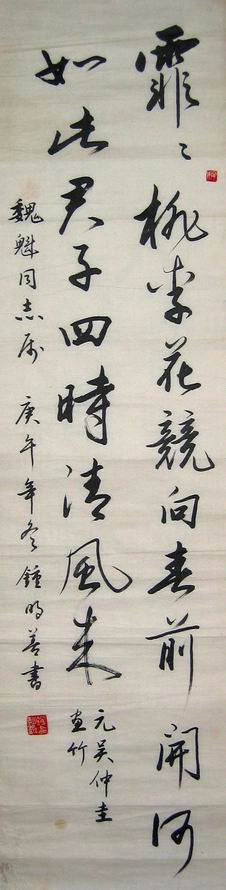 霏〻桃李花競向春前開何
如此君子四時清風来
元吴仲圭
画竹
魏魁同志属 庚午年冬鍾明善書